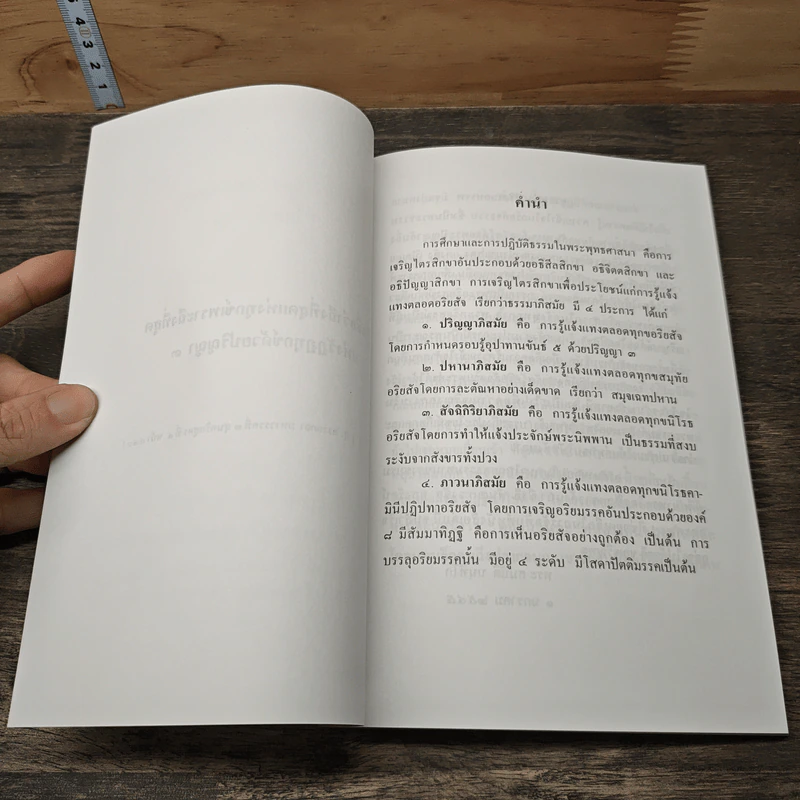 4
3
2
1
คำนำ
การศึกษาและการปฏิบัติธรรมในพระพุทธศาสนา คือการ
เจริญไตรสิกขาอันประกอบด้วยอธิสีลสิกขา อธิจิตตสิกขา และ
อธิปัญญาสิกขา การเจริญไตรสิกขาเพื่อประโยชน์แก่การรู้แจ้ง
แทงตลอดอริยสัจ เรียกว่าธรรมาภิสมัย มี ๔ ประการ ได้แก่
๑. ปริญญาภิสมัย คือ การรู้แจ้งแทงตลอดทุกขอริยสัจ
โดยการกำหนดรอบรู้อุปาทานขันธ์ ๕ ด้วยปริญญา ๓
๒. ปหานาภิสมัย คือ การรู้แจ้งแทงตลอดทุกขสมุทัย
อริยสัจโดยการละตัณหาอย่างเด็ดขาด เรียกว่า สมุจเฉทปหาน
๓. สัจฉิกิริยาภิสมัย คือ การรู้แจ้งแทงตลอดทุกขนิโรธ
อริยสัจโดยการทำให้แจ้งประจักษ์พระนิพพาน เป็นธรรมที่สงบ
ระงับจากสังขารทั้งปวง
๔. ภาวนาภิสมัย คือ การรู้แจ้งแทงตลอดทุกขนิโรธคา-
มินีปฏิปทาอริยสัจ โดยการเจริญอริยมรรคอันประกอบด้วยองค์
๘ มีสัมมาทิฏฐิ คือการเห็นอริยสัจอย่างถูกต้อง เป็นต้น การ
บรรลุอริยมรรคนั้น มีอยู่ ๔ ระดับ มีโสดาปัตติมรรคเป็นต้น